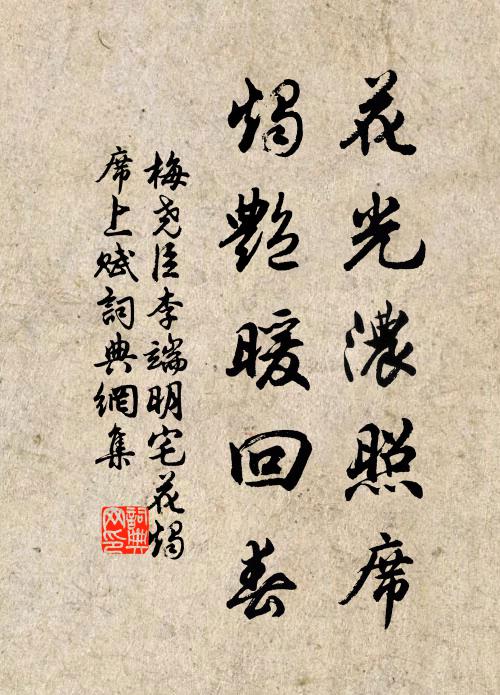 花光濃照席
燭艷暖回春
梅堯臣李端明宅花燭
席上賦詞典網集
詞典網印